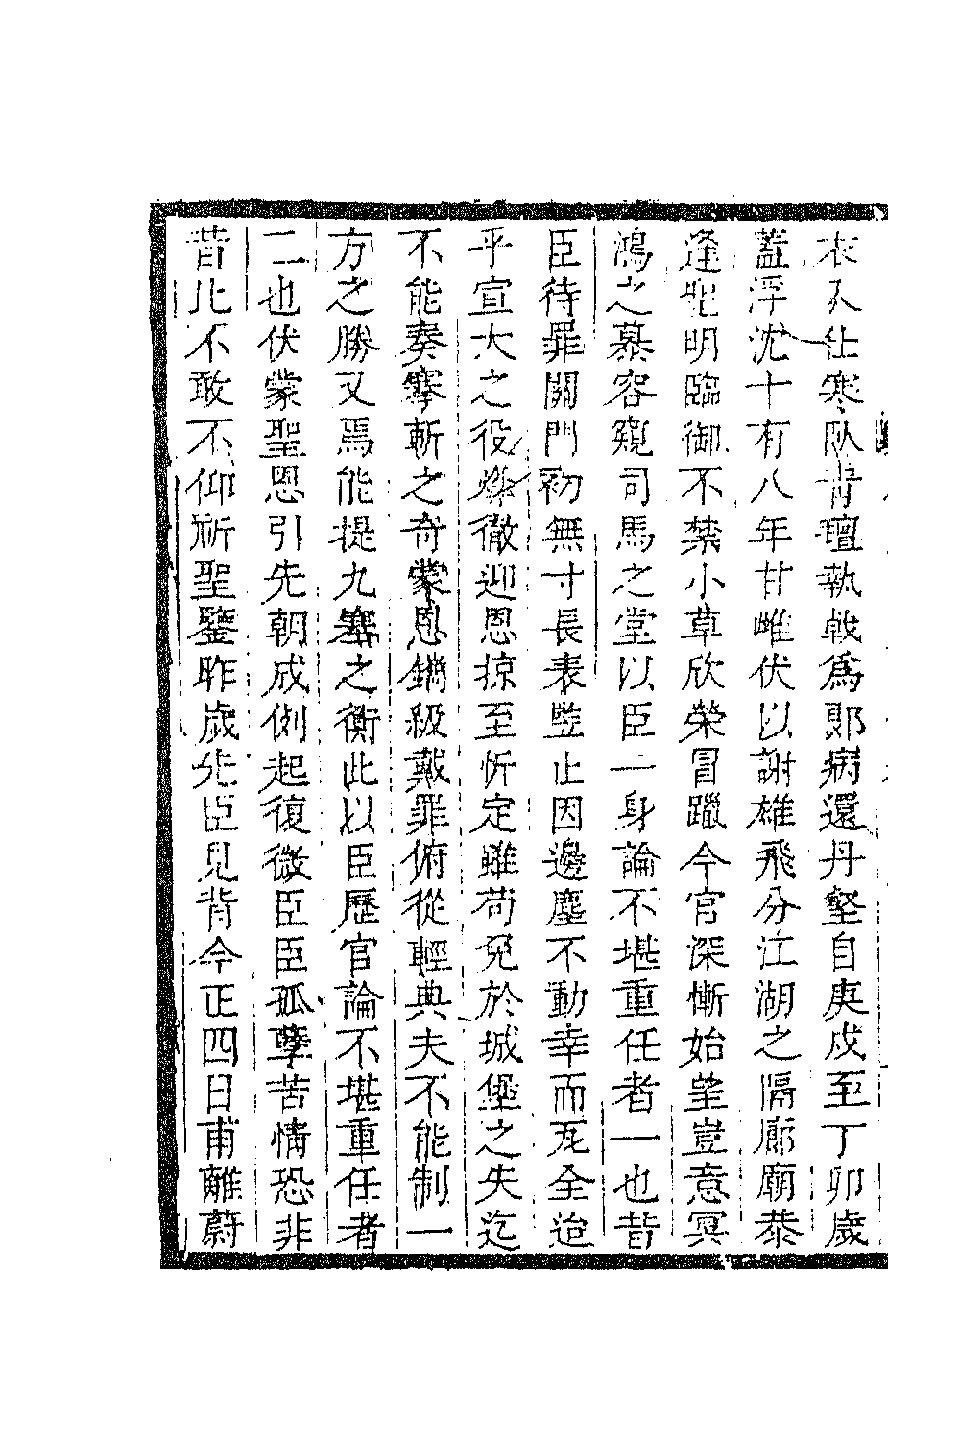 衣入仕寒隊靑壇執戟爲郞病還丹壑自庚戍至丁卯歲
蓋浮沈十有八年甘雌伏以謝雄飛分江湖之隔廊廟恭
逢聖明臨御不禁小草欣榮冒躐今官深慚始望豈意冥
鴻之慕容窺司馬之堂以臣一身論不堪重任者一也昔
臣待罪關門初無寸長表竪止因邊塵不動幸而瓦全迨
平宣大之役燐徹迎恩掠至忻定雖苟免於城堡之失迄
不能奏搴斬之奇蒙恩鐫級戴罪俯從輕典夫不能制一
方之勝又焉能提九塞之衡此以臣歷官論不堪重任者
二也伏蒙聖恩引先朝成例起復微臣臣孤孽苦情恐非
昔比不敢不仰祈聖鑒昨歲先臣見背今正四日甫離蔚